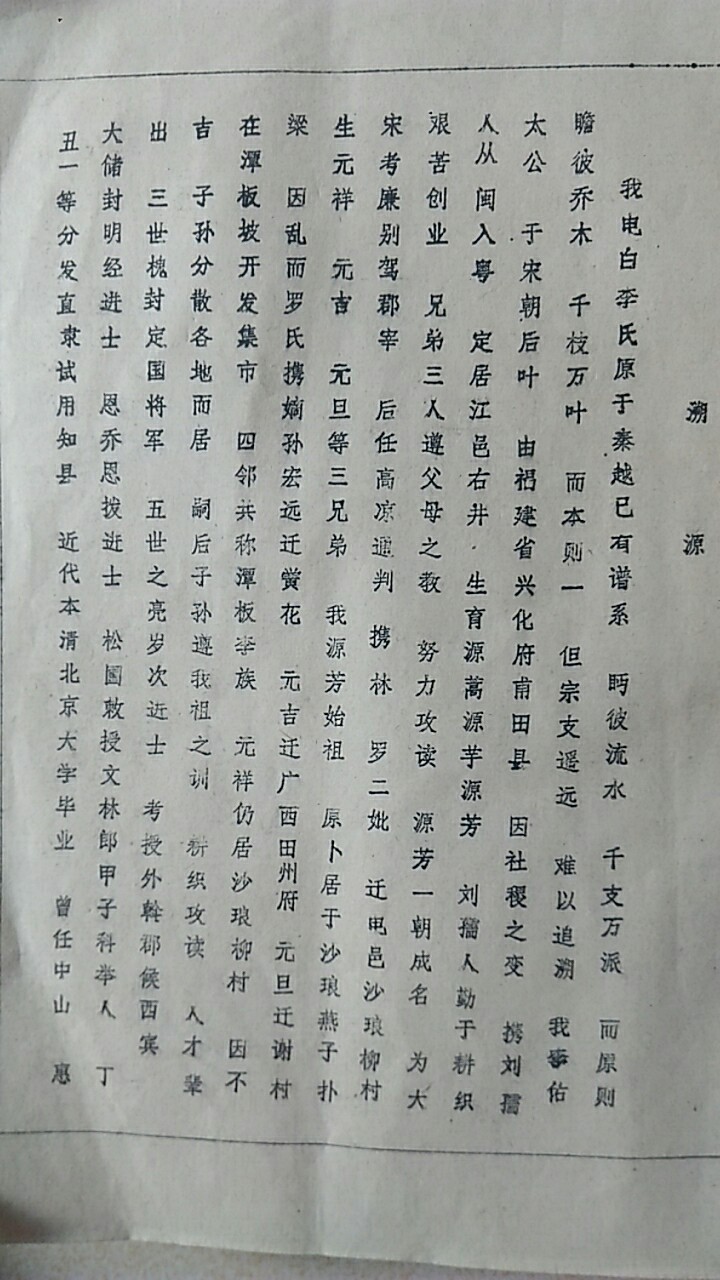 溯源
我电白李氏原于秦越已有谱系 眄彼流水 千支万派 而原则
瞻彼乔木 千枝万叶 而本则一 但宗支遥远 难以追溯 我 佑
太公 于宋朝后叶 由福建省兴化府甫田县 因社稷之变 携刘孺
人从闽入粤 定居江邑右井 · 生育源蒿源芋源芳 刘孺人勤于耕织
艰苦创业 兄弟三人遵父母之教 努力攻读 源芳一朝成名 为大
宋考廉别驾郡宰 后任高凉通判 携林 罗二妣 迁电邑沙琅柳村
生元祥 元吉 元旦等三兄弟 我源芳始祖 原卜居于沙琅燕子扑
梁 因乱而罗氏携嫡孙宏远迁黉花 元吉迁广西田州府 元旦迁谢村
在潭板坡开发集市 四邻共称潭板李族 元祥仍居沙琅柳村 因不
吉 子孙分散各地而居 嗣后子孙遵我祖之训 耕织攻读 人才辈
出 三世槐封定国将军 五世之亮岁次进士 考授外斡郡候西宾
大储封明经进士 恩乔恩拨进士 松国敕授文林郎甲子科举人 丁
丑一等分发直隶试用知县 近代本清北京大学毕业 曾任中山 惠